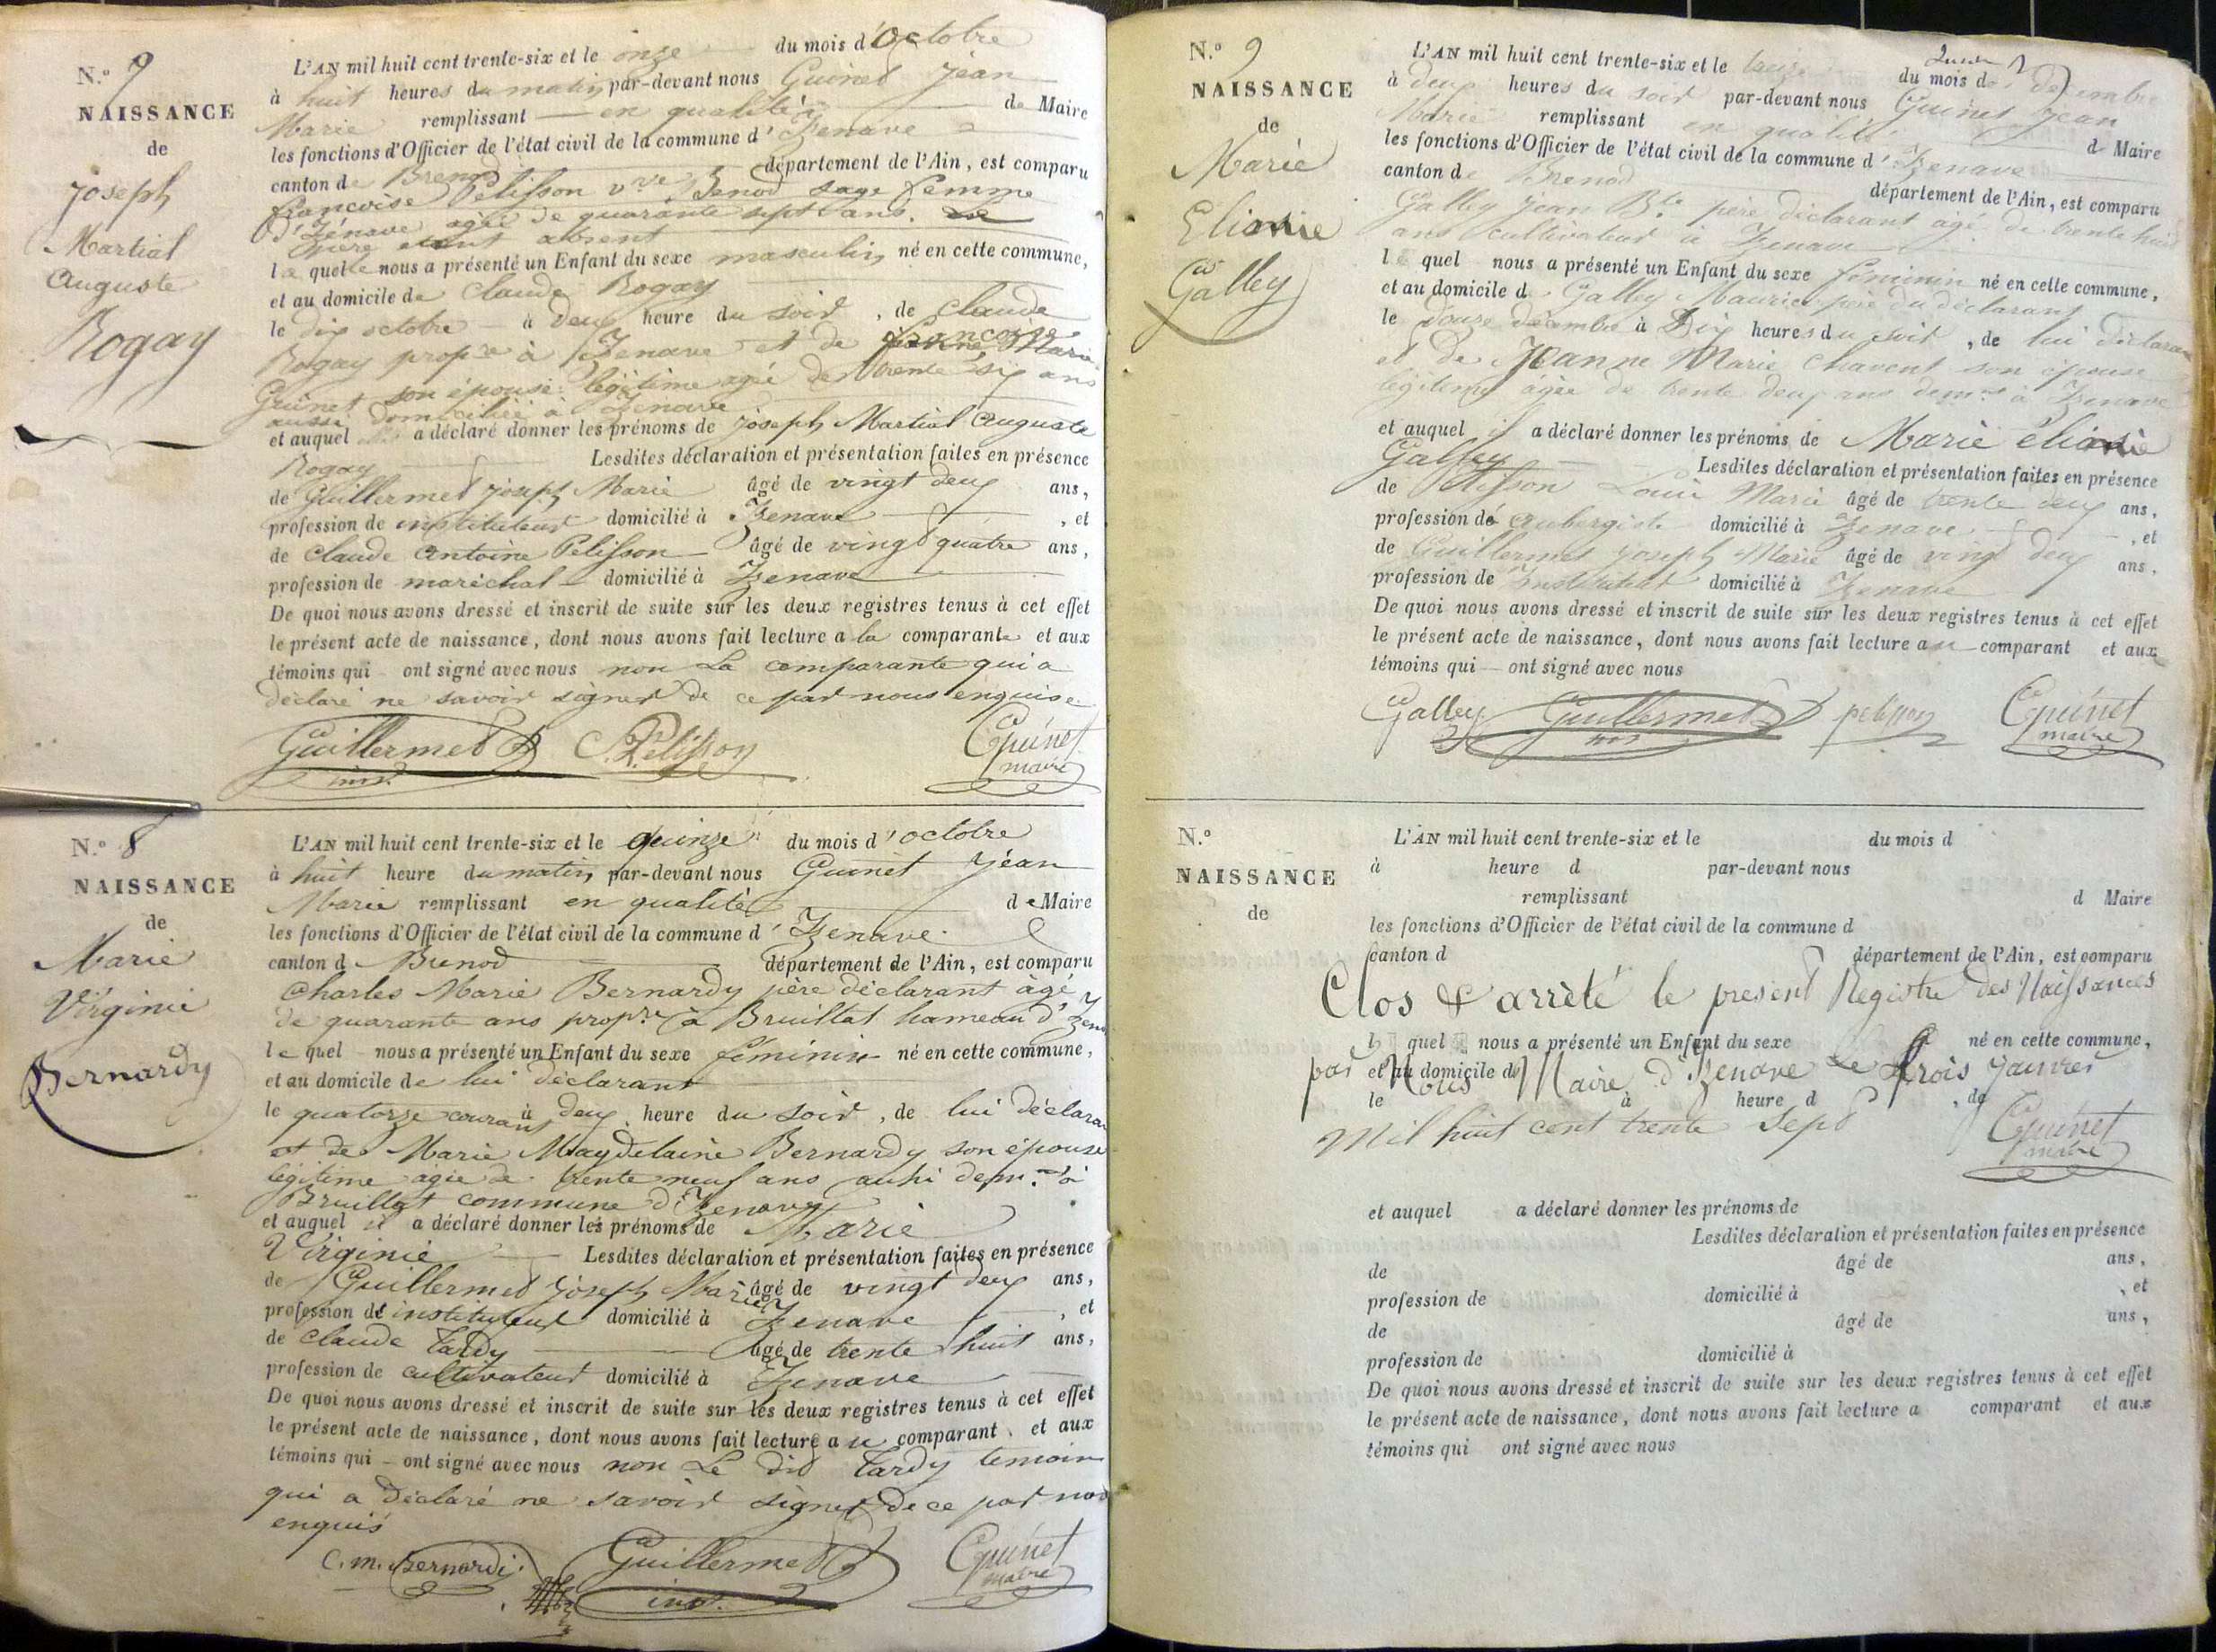 N.o 7
NAISSANCE
de
Joseph
Martial
Auguste
Rogay
L'AN mil huit cent trente-six et le onze du mois d'Octobre
à huit heures du matin par-devant nous Guinet Jean
Marie remplissant en qualité de Maire
les fonctions d'Officier de l'état civil de la commune d'Izenave
canton de Brenod département de l'Ain, est comparu
françoise Pelisson v.ve Benod sage femme
d'izénave agée de quarante sept ans. Le
père etant absent
la quelle nous a présenté un Enfant du sexe masculin né en cette commune,
et au domicile de Claude Rogay
le dix octobre à deux heure du soir, de Claude
Rogay prop.re à Izenave et de françoise Marie
Guinet son épouse légitime agée de trente six ans
aussi domiciliée à Izenave
et auquel a déclaré donner les prénoms de joseph Martial Auguste
Rogay Lesdites déclaration et présentation faites en présence
de Guillermet joseph Marie âgé de vingt deux ans,
profession de instituteur domicilié à Izenave, et
de Claude Antoine Pelisson âgé de vingt quatre ans,
profession de maréchal domicilié à Izenave
De quoi nous avons dressé et inscrit de suite sur les deux registres tenus à cet effet
le présent acte de naissance, dont nous avons fait lecture a la comparante et aux
témoins qui ont signé avec nous non La comparante qui a
déclaré ne savoir signer de ce par nous enquise
Guillermet Pelisson Guinet
inst. maire
N.o 8
NAISSANCE
de
Marie
Virginie
Bernardy
L'AN mil huit cent trente-six et le quinze du mois d'octobre
à huit heure du matin par-devant nous Guinet Jean
Marie remplissant en qualité de Maire
les fonctions d'Officier de l'état civil de la commune d'Izenave
canton de Brenod département de l'Ain, est comparu
Charles Marie Bernardy père déclarant âgé
de quarante ans prop.re à Bruillat hameau d'Izena
le quel nous a présenté un Enfant du sexe féminin né en cette commune,
et au domicile de lui déclarant
le quatorze courant à deux heure du soir, de lui déclarant
et de Marie Magdelaine Bernardy son épouse
légitime agée de trente neuf ans aussi dem.te à
Bruillat commune d'Izenave
et auquel il a déclaré donner les prénoms de Marie
Virginie Lesdites déclaration et présentation faites en présence
de Guillermet Joseph Marie âgé de vingt deux ans,
profession de instituteur domicilié à Izenave, et
de Claude Tardy âgé de trente huit ans,
profession de cultivateur domicilié à Izenave
De quoi nous avons dressé et inscrit de suite sur les deux registres tenus à cet effet
le présent acte de naissance, dont nous avons fait lecture au comparant et aux
témoins qui ont signé avec nous non Le dit Tardy temoin
qui a déclaré ne savoir signer de ce par nous
enquis
C. m. Bernardi. Guillermet Guinet
inst. maire
N.o 9
NAISSANCE
de
Marie
Galley
L'AN mil huit cent trente-six et le treize du mois de décembre
à deux heures du soir par-devant nous Guinet Jean
Marie remplissant en qualité d Maire
les fonctions d'Officier de l'état civil de la commune d'Izenave
canton de Brenod département de l'Ain, est comparu
Galley Jean B.te père déclarant agé de trente huit
ans cultivateur à Izenave
le quel nous a présenté un Enfant du sexe féminin né en cette commune,
et au domicile d Galley Maurice père du déclarant
le douze décembre à Dix heures du soir, de lui déclarant
et de Jeanne Marie Chavent son épouse
légitime agée de trente deux ans dem.te à Izenave
et auquel il a déclaré donner les prénoms de Marie
Galley Lesdites déclaration et présentation faites en présence
de Pelisson Louis Marie âgé de trente deux ans,
profession de aubergiste domicilié à Izenave, et
de Guillermet Joseph Marie âgé de vingt deux ans,
profession de Instituteur domicilié à Izenave
De quoi nous avons dressé et inscrit de suite sur les deux registres tenus à cet effet
le présent acte de naissance, dont nous avons fait lecture au comparant et aux
témoins qui ont signé avec nous
Galley Guillermet pelisson Guinet
inst. maire
N.o
NAISSANCE
de
L'AN mil huit cent trente-six et le du mois d
à heure d par-devant nous
remplissant d Maire
les fonctions d'Officier de l'état civil de la commune d
canton d département de l'Ain, est comparu
Clos & arrêté le present Registre des Naissances
l quel nous a présenté un Enfant du sexe né en cette commune,
et au domicile d
par Nous Maire d'Izenave le trois janvier
le à heure d, de
Mil huit cent trente Sept Guinet
maire
et auquel a déclaré donner les prénoms de
Lesdites déclaration et présentation faites en présence
de âgé de ans,
profession de domicilié à, et
de âgé de ans,
profession de domicilié à
De quoi nous avons dressé et inscrit de suite sur les deux registres tenus à cet effet
le présent acte de naissance, dont nous avons fait lecture a comparant et aux
témoins qui ont signé avec nous